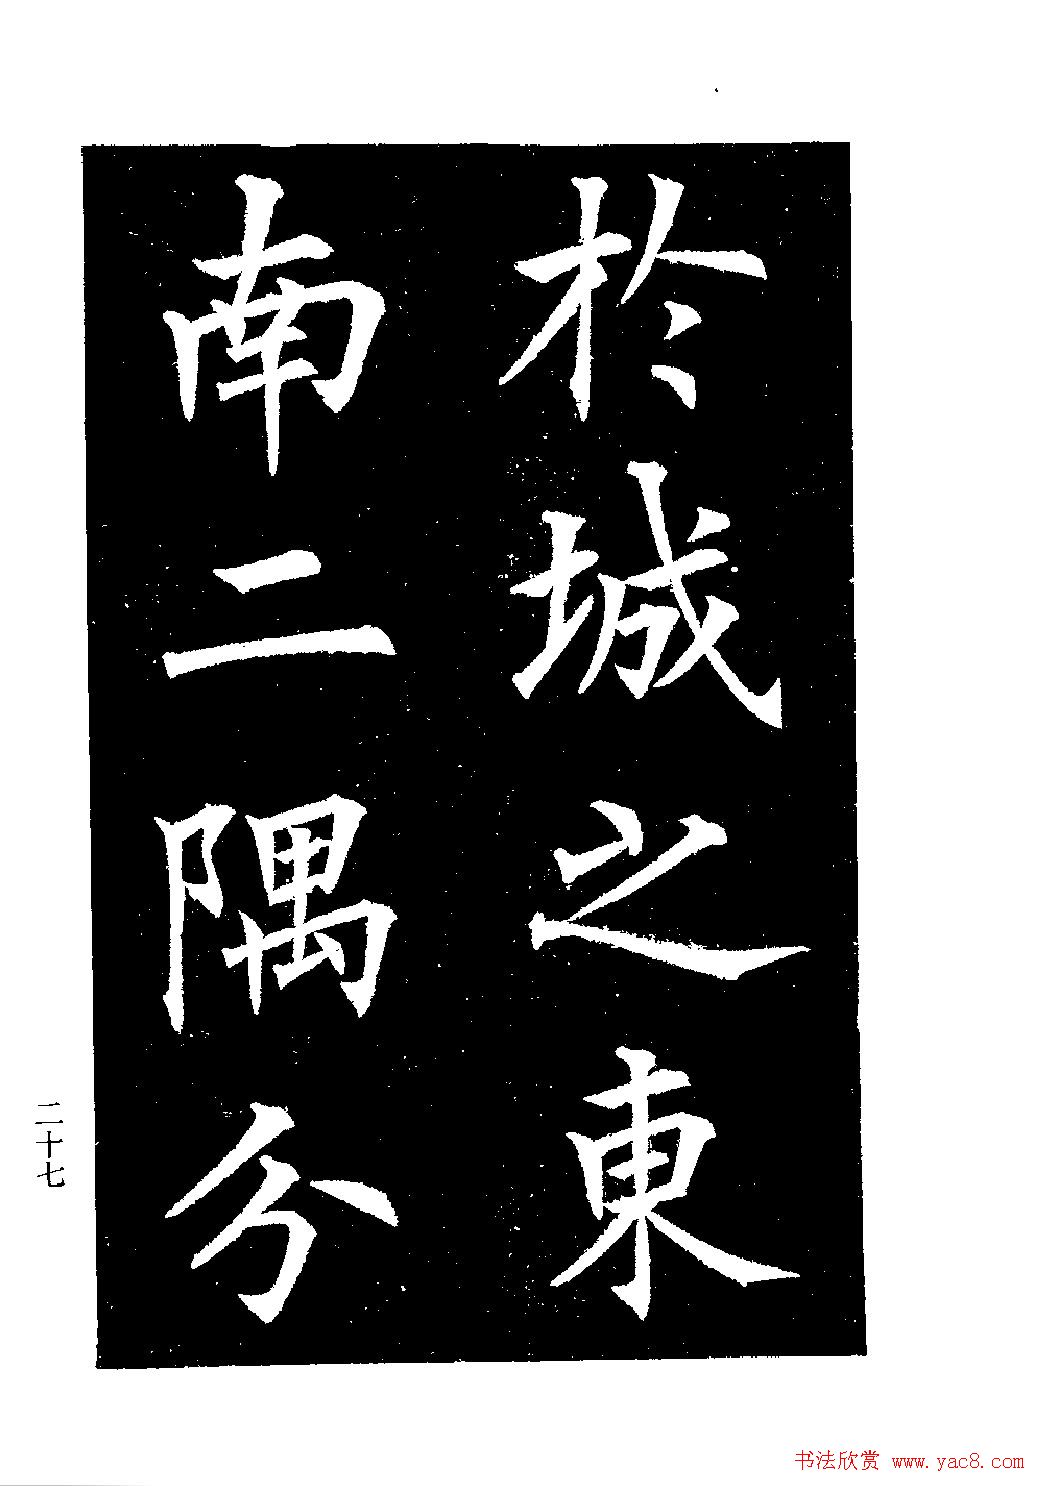 於城之東
南二隅分
二十七
书法欣赏 www.yac8.com